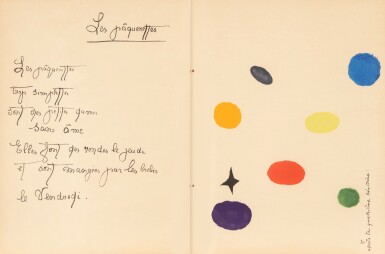 Les pâquerettes
Les pâquerettes
trop simplettes
sont des petites dames
sans âme
Elles font des rondes le jeudi
et sont mangées par les
le Vendredi.